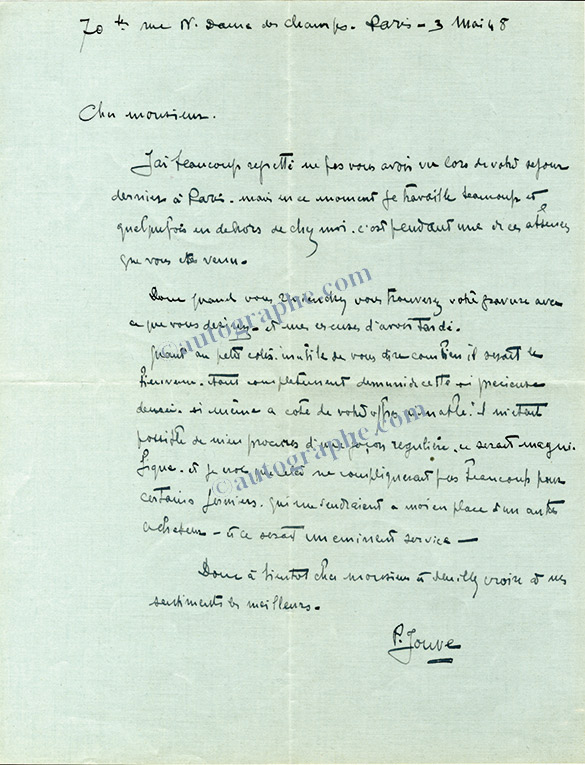 70 bis rue N. Dame des champs. Paris - 3 Mai 48
Cher monsieur.
J'ai beaucoup regretté ne pas vous avoir vu lors de votre sejour
dernier à Paris. mais en ce moment je travaille beaucoup et
quelquefois en dehors de chez moi. c'est pendant une de ces absences
que vous etes venu.
Donc quand vous viendrez vous trouverez votre gravure avec
ce que vous desirez. et mes excuses d'avoir tardé.
Quant au petit colis. inutile de vous dire combien il serait le
bienvenu. étant completement demuni de cette si precieuse
denrée. si même a coté de votre offre aimable. il m'etait
possible de m'en procurer d'une façon reguliere. ce serait magni-
fique. et je cela ne compliquerait pas beaucoup pour
certains fermiers. qui me vendraient a moi en place d'un autre
acheteur - et ce serait un eminent service —
Donc à bientot cher monsieur et veuillez croire à mes
sentiments les meilleurs.
P. Jouve
©autographe.com
©autographe.com